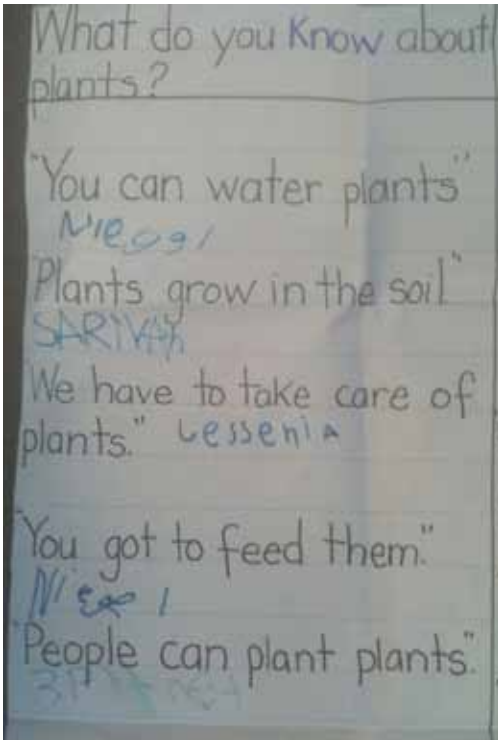 What do you Know about
plants?
"You can water plants"
Plants grow in the soil"
SARIVAH
"We have to take care of
plants." Lessenia
"You got to feed them."
"People can plant plants".